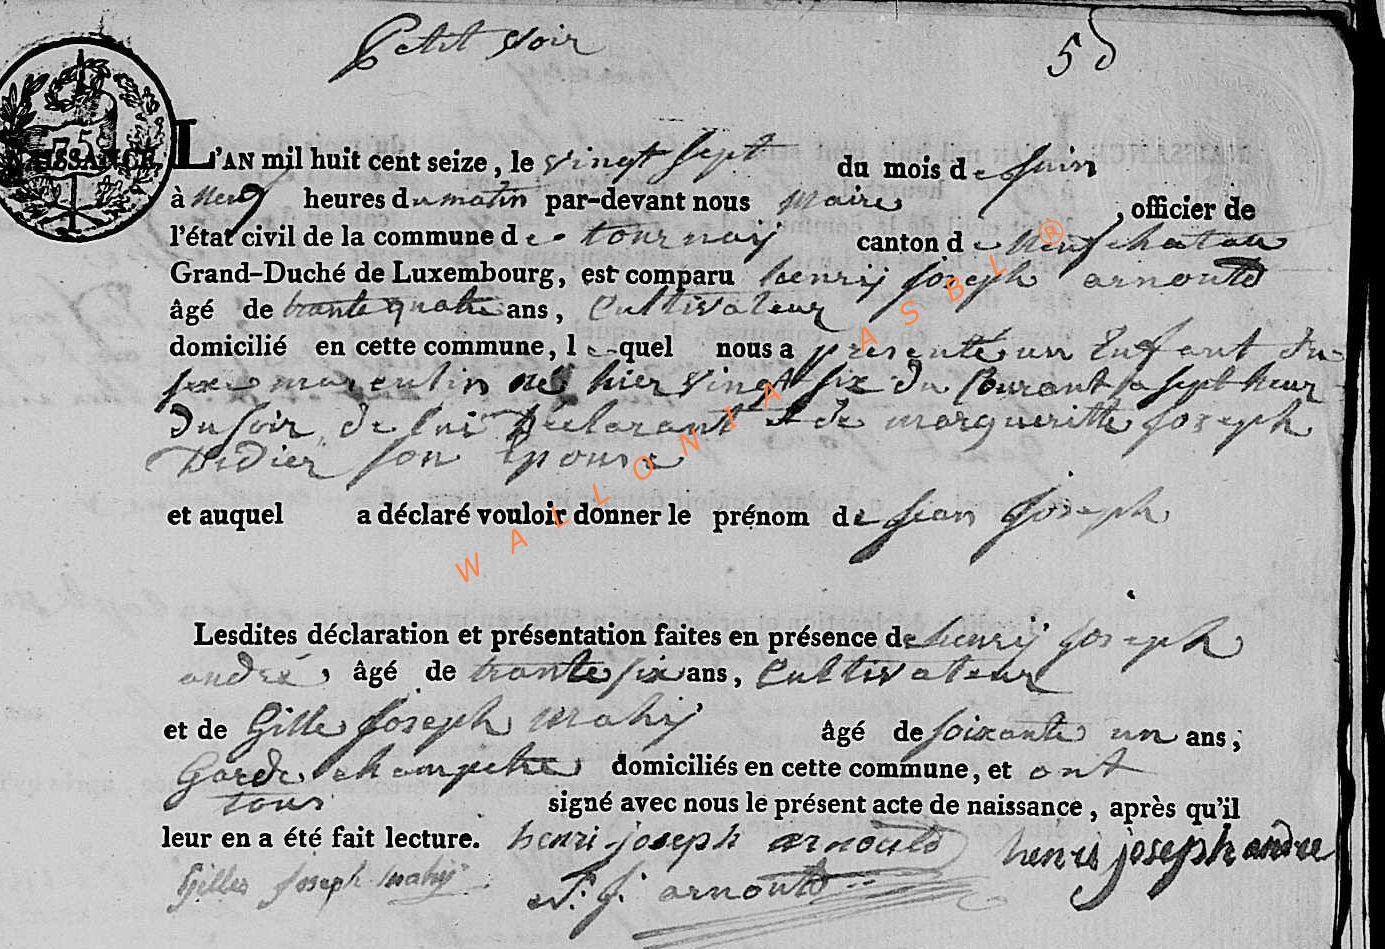 Petit voir
5
75
NAISSANCE.
L'AN mil huit cent seize, le vingt sept du mois de Juin
à neuf heures du matin par-devant nous maire , officier de
l'état civil de la commune de tournay canton de neufchatau
Grand-Duché de Luxembourg, est comparu henrij joseph arnould
âgé de trante quatre ans, Cultivateur
domicilié en cette commune, lequel nous a presenté un Enfant du
sexe masculin né hier vingt six du Courant a sept heur
du soir, de lui Déclarant et de margueritte joseph
Didier son Epouse
et auquel a déclaré vouloir donner le prénom de jean joseph
Lesdites déclaration et présentation faites en présence de henrij joseph
andré, âgé de trante six ans, Cultivateur
et de Gille joseph mahij âgé de soixante un ans,
Garde champetre domiciliés en cette commune, et ont
tous signé avec nous le présent acte de naissance, après qu'il
leur en a été fait lecture. henri joseph arnould henri joseph andre
Gilles joseph mahij j. arnould
WALLONIA ASBL ®